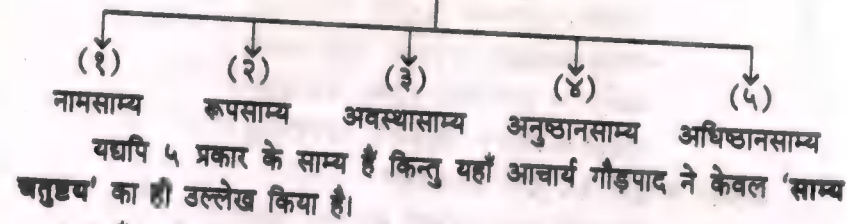 (१) (२) (३) (४) (५)
नामसाम्य रूपसाम्य अवस्थासाम्य अनुष्ठानसाम्य अधिष्ठानसाम्य
यद्यपि ५ प्रकार के साम्य हैं किन्तु यहाँ आचार्य गौड़पाद ने केवल 'साम्य
चतुष्टय' का ही उल्लेख किया है।